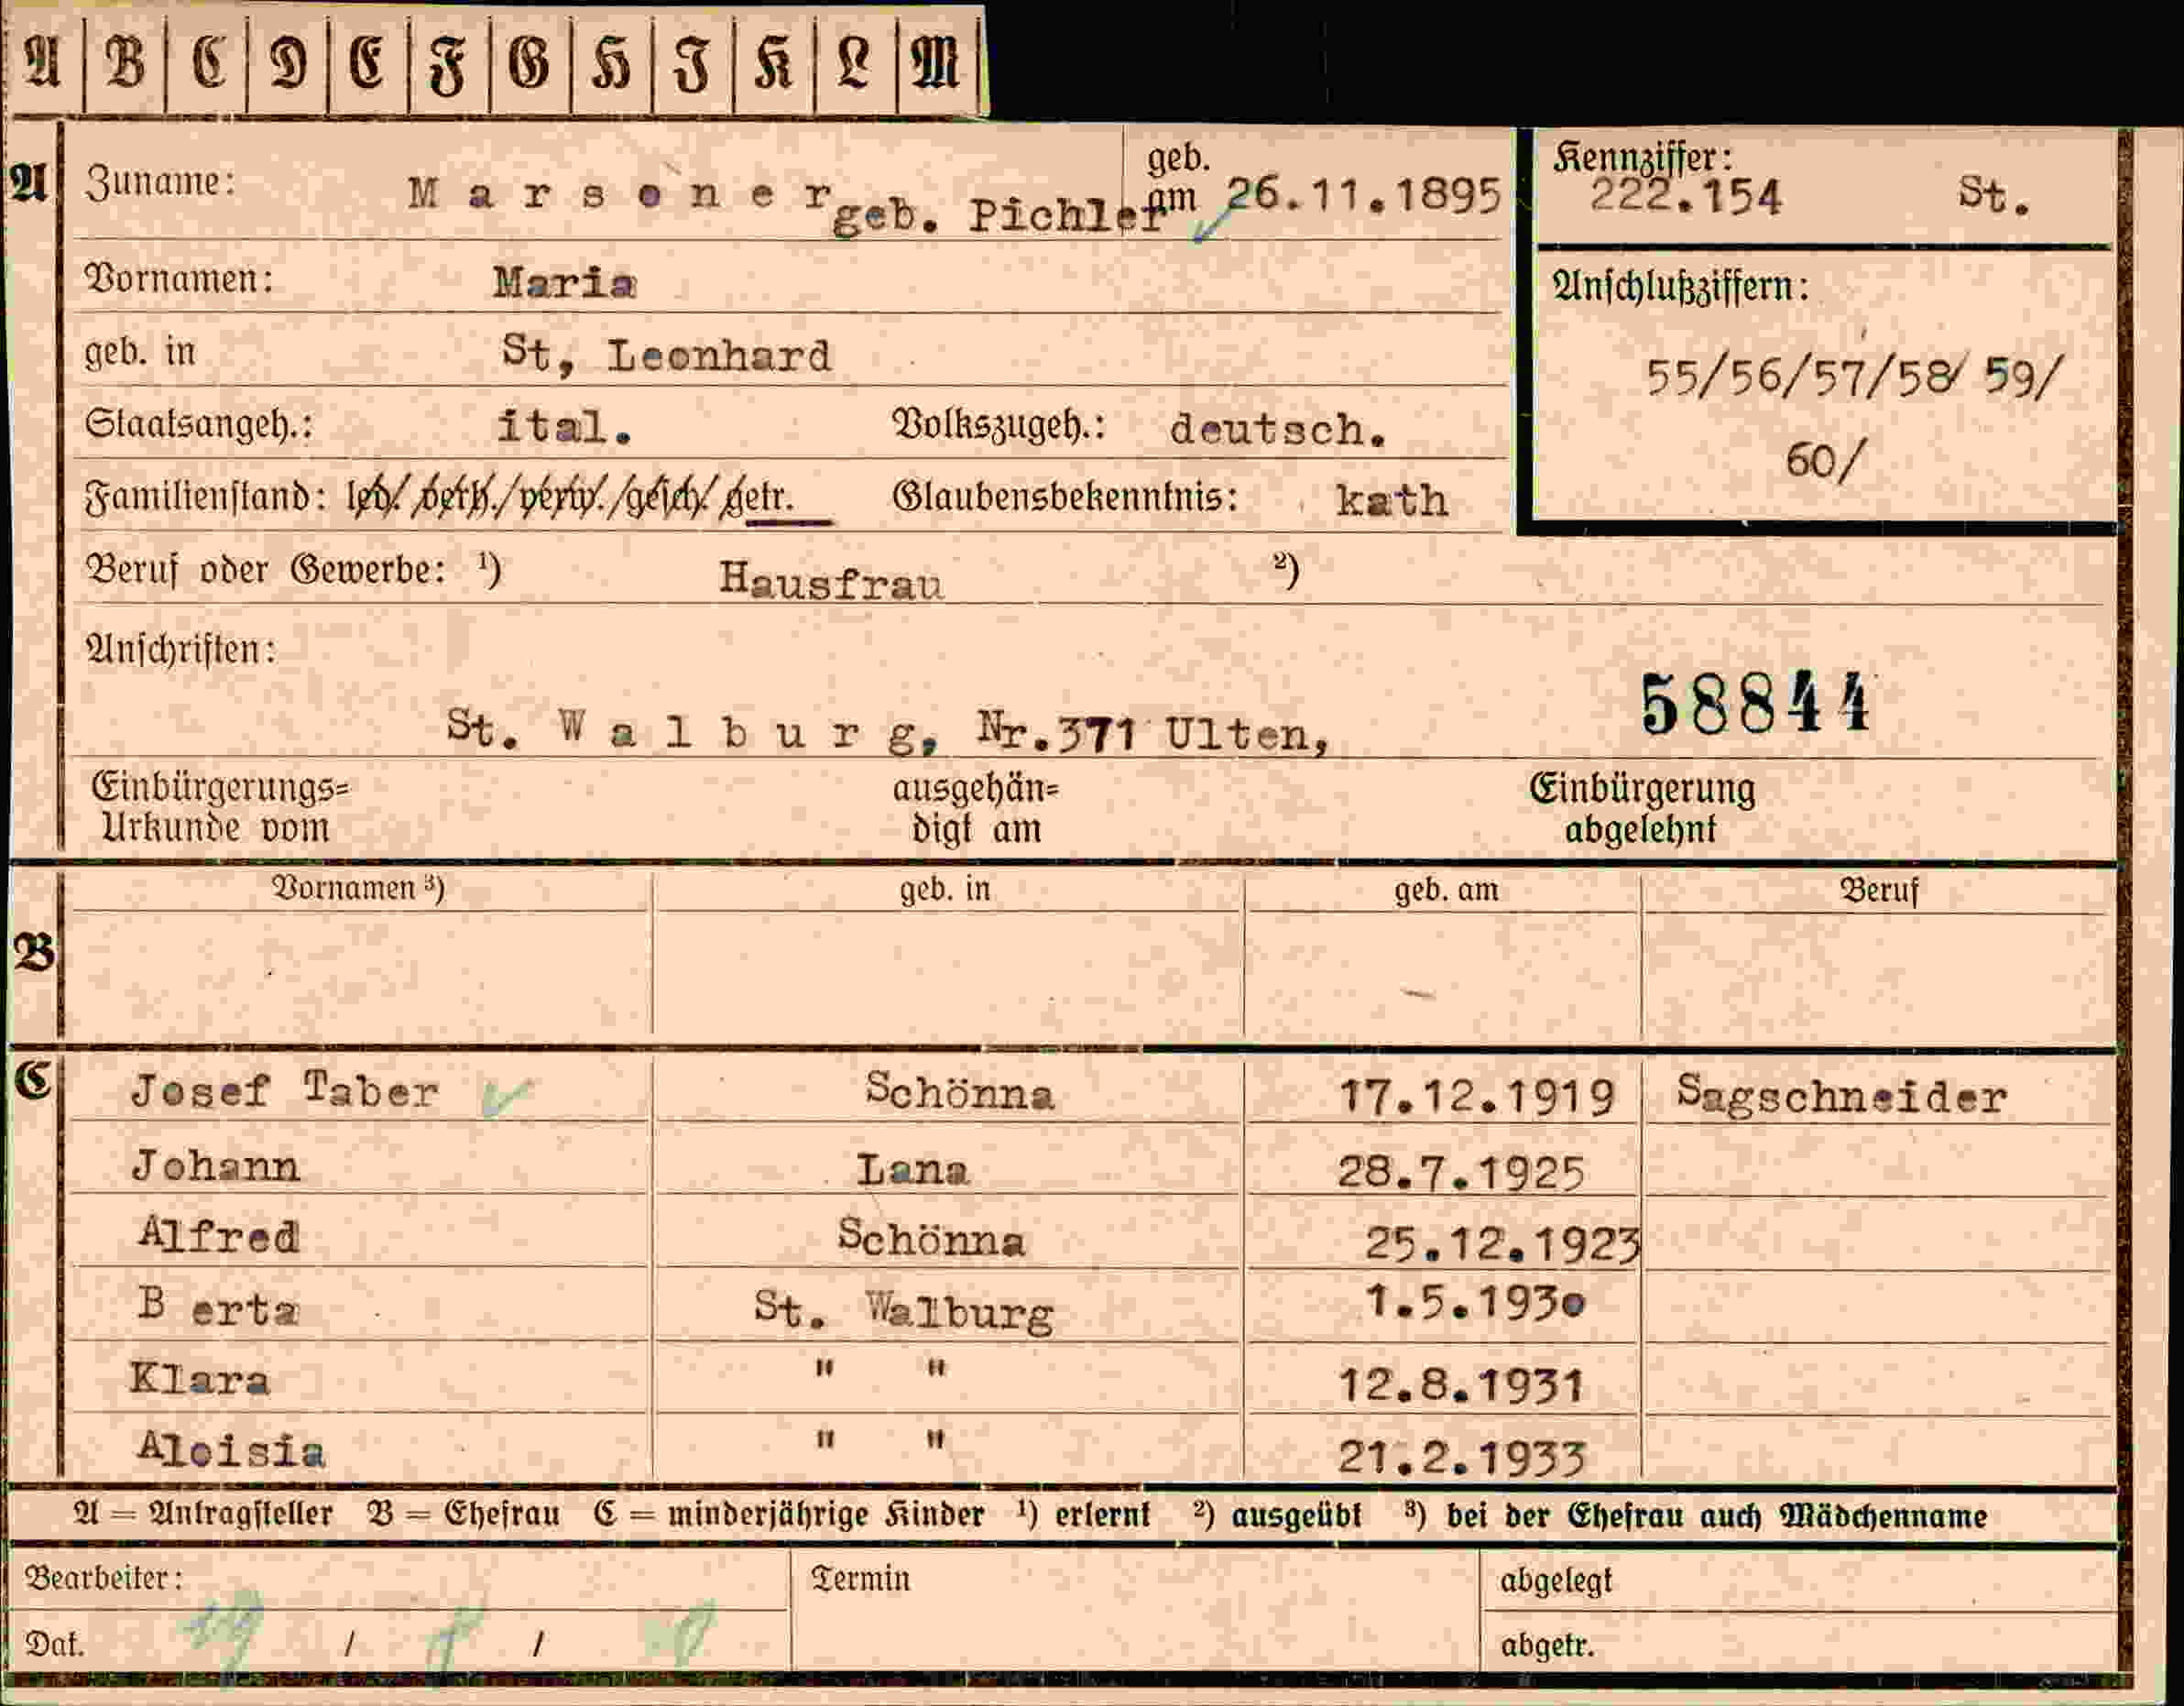 A | B | C | D | E | F | G | H | I | K | L | M
A Zuname: Marsoner geb. Pichler geb. am 26.11.1895
Kennziffer: 222.154 St.
Vornamen: Maria
Anschlußziffern:
geb. in St, Leonhard
55/56/57/58/ 59/
60/
Staatsangeh.: ital. Volkszugeh.: deutsch.
Familienstand: led./verh./verw./gesch./getr. Glaubensbekenntnis: kath
Beruf oder Gewerbe: ¹) Hausfrau ²)
Anschriften:
58844
St. Walburg, Nr.371 Ulten,
Einbürgerungs= ausgehän= Einbürgerung
Urkunde vom digt am abgelehnt
B Vornamen ³) geb. in geb. am Beruf
C Josef Taber Schönna 17.12.1919 Sagschneider
Johann Lana 28.7.1925
Alfred Schönna 25.12.1923
B erta St. Walburg 1.5.1930
Klara " " 12.8.1931
Aloisia " " 21.2.1933
A = Antragsteller B = Ehefrau C = minderjährige Kinder ¹) erlernt ²) ausgeübt ³) bei der Ehefrau auch Mädchenname
Bearbeiter: Termin abgelegt
Dat. / / abgetr.